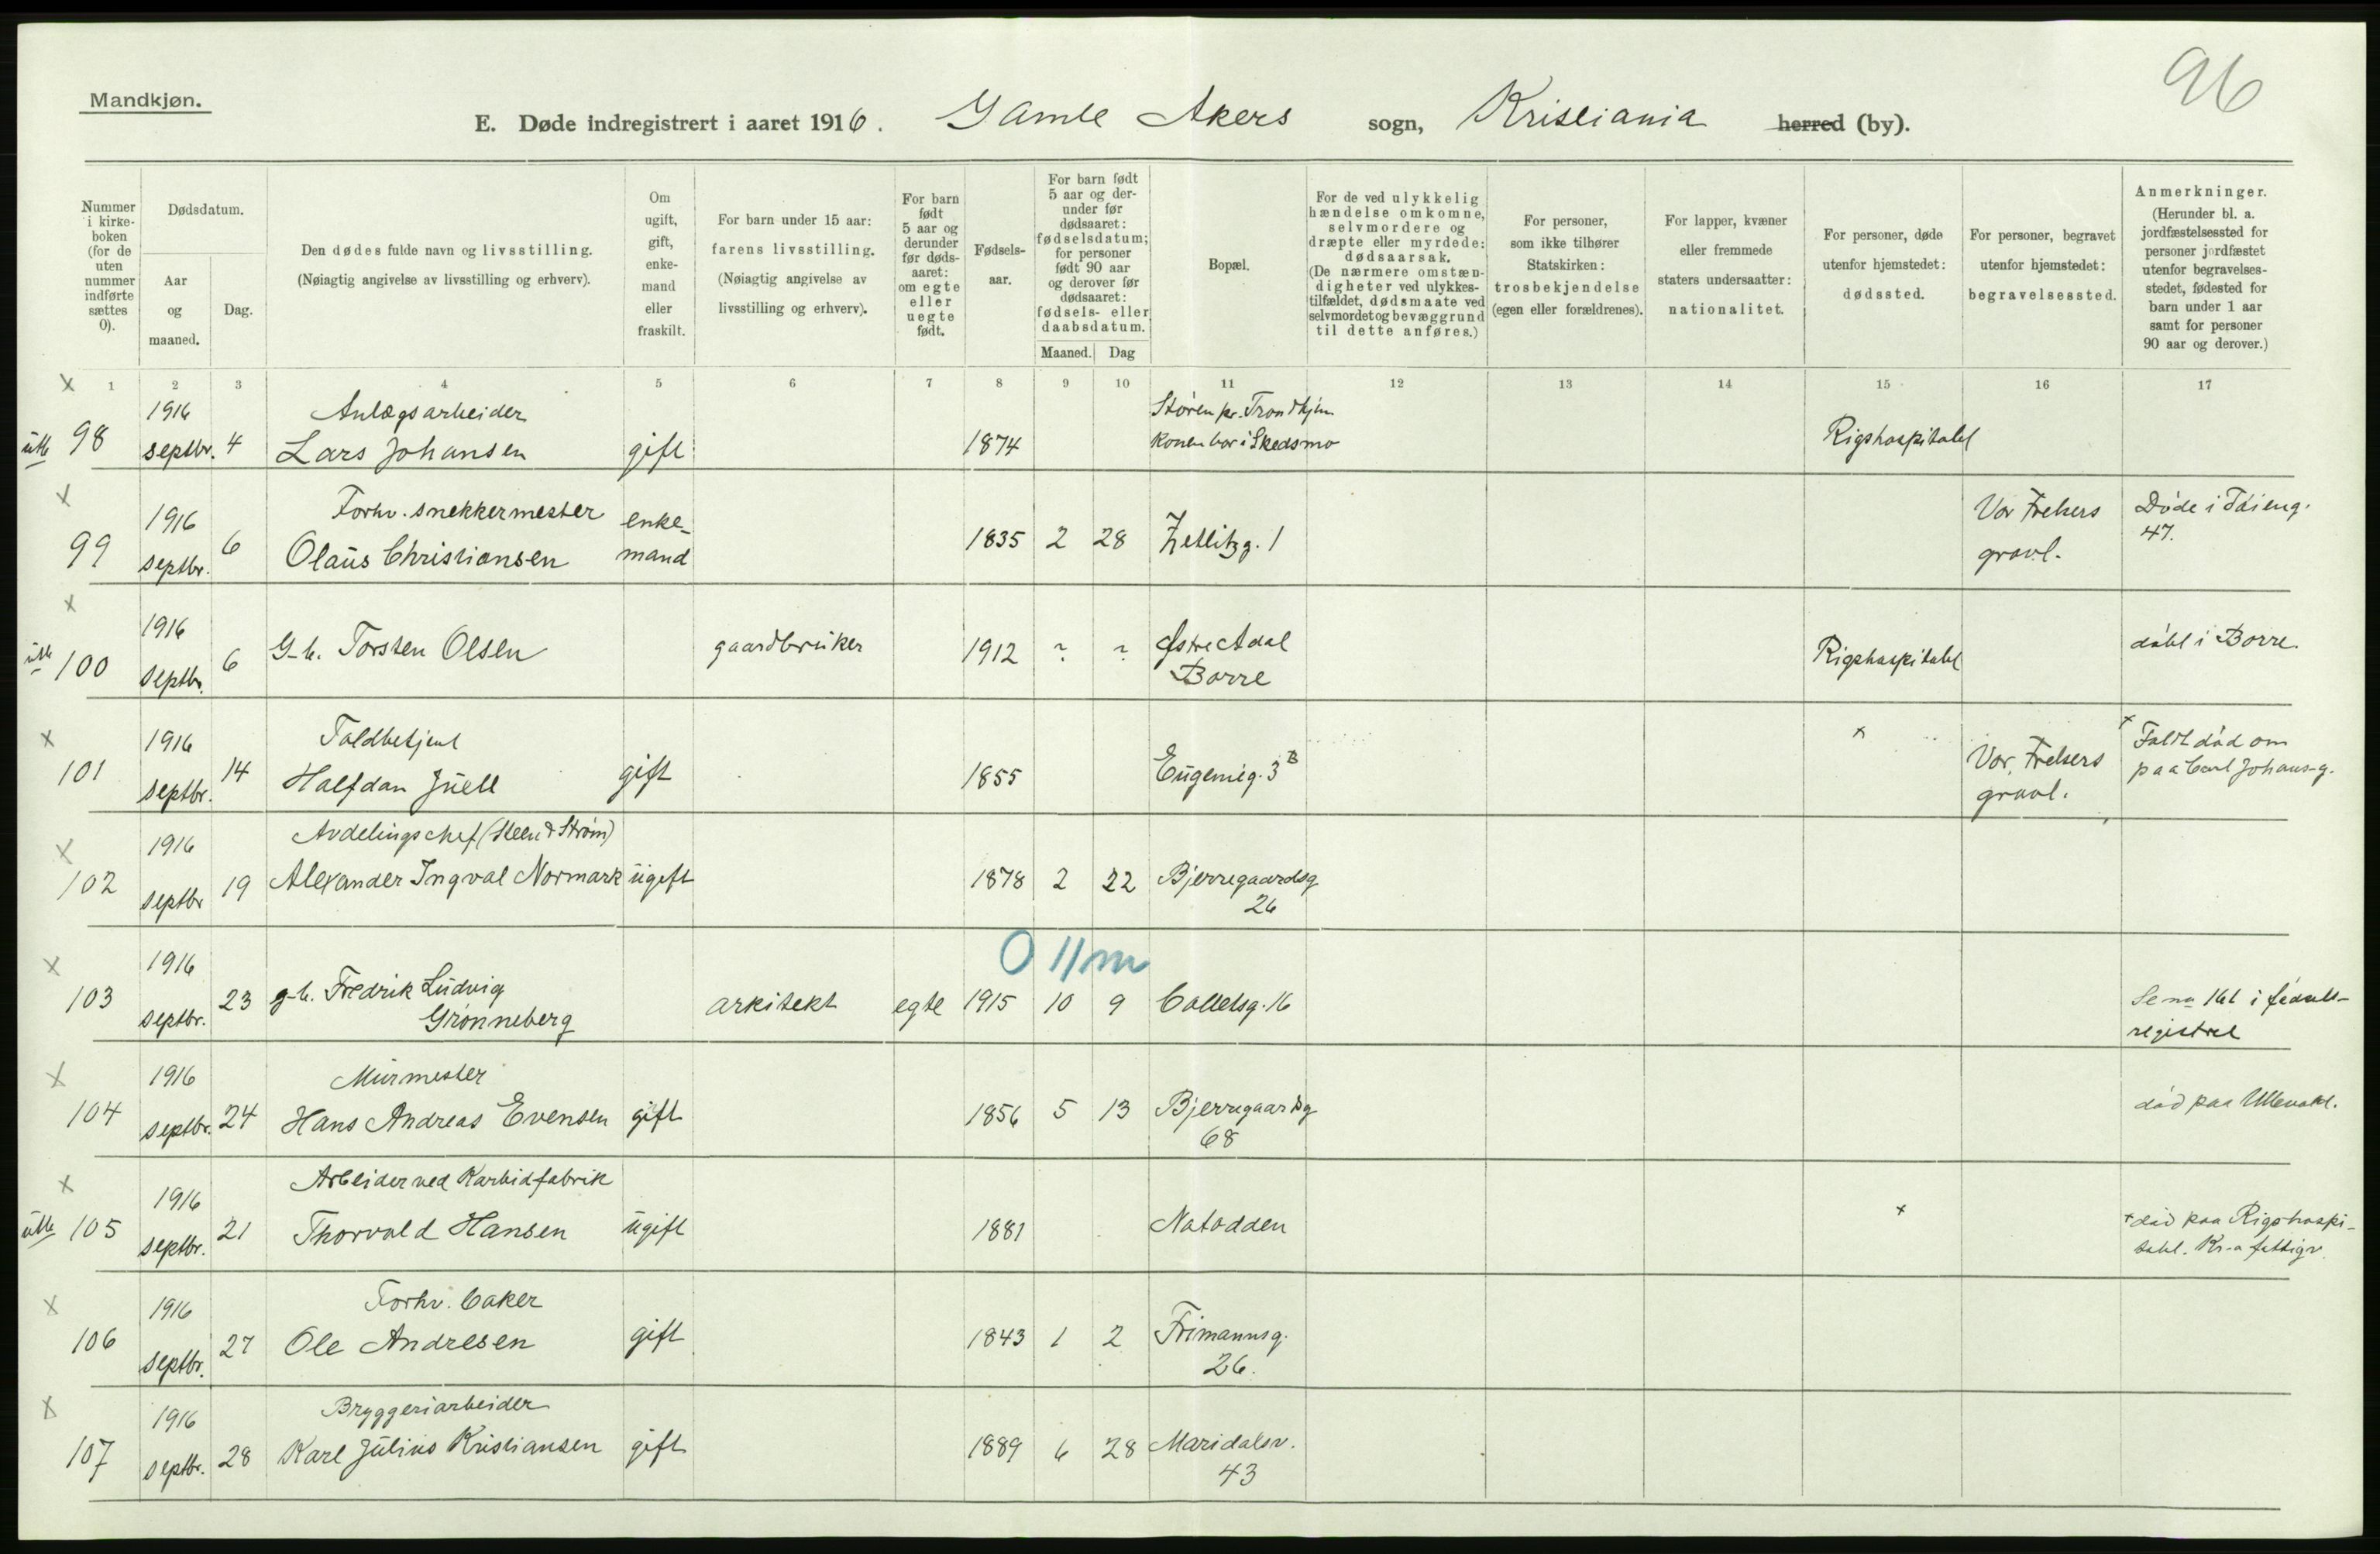 96
Mandkjøn.
E. Døde indregistrert i aaret 1916. Gamle Akers sogn, Kristiania herred (by).
Nummer i kirke-boken (for de uten nummer indførte sættes 0).
Dødsdatum.
Aar og maaned.
Dag.
Den dødes fulde navn og livsstilling.
(Nøiagtig angivelse av livsstilling og erhverv).
Om ugift, gift, enke-mand eller fraskilt.
For barn under 15 aar: farens livsstilling. (Nøiagtig angivelse av livsstilling og erhverv).
For barn født 5 aar og derunder før døds-aaret: om egte eller uegte født.
Fødsels-aar.
For barn født 5 aar og der-under før dødsaaret: fødselsdatum; for personer født 90 aar og derover før dødsaaret: fødsels- eller daabsdatum.
Maaned. Dag
Bopæl.
For de ved ulykkelig hændelse omkomne, selvmordere og dræpte eller myrdede: dødsaarsak. (De nærmere omstæn-digheter ved ulykkes-tilfældet, dødsmaate ved selvmordet og bevæggrund til dette anføres.)
For personer, som ikke tilhører Statskirken: trosbekjendelse (egen eller forældrenes).
For lapper, kvæner eller fremmede staters undersaatter: nationalitet.
For personer, døde utenfor hjemstedet: dødssted.
For personer, begravet utenfor hjemstedet: begravelsessted.
Anmerkninger. (Herunder bl. a. jordfæstelsessted for personer jordfæstet utenfor begravelses-stedet, fødested for barn under 1 aar samt for personer 90 aar og derover.)
1 2 3 4 5 6 7 8 9 10 11 12 13 14 15 16 17
x
1916 Anlægsarbeider Støren pr. Trondhjem
98 septbr. 4 Lars Johansen gift 1874 Konen bor i Skedsmo Rigshospitalet
x
1916 Forhv. snekkermester enke- Vor Frelsers Døde i Tøieng.
99 septbr. 6 Olaus Christiansen mand 1835 2 28 Zetlitzg. 1 gravl. 47.
x
1916
100 septbr. 6 G-b. Torsten Olsen gaardbruker 1912 ? ? Østre Adal Rigshospitalet døbt i Borre.
Borre
x
1916 Toldbetjent x x Faldt død om
101 septbr. 14 Halfdan Juell gift 1855 Eugenieg. 3 B Vor Frelsers paa Carl Johans-g.
gravl.
x
1916 Avdelingschef (Steen & Strøm)
102 septbr 19 Alexander Ingval Normark ugift 1878 2 22 Bjerregaardsg
26
0 11 m
x
1916
103 septbr. 23 g-b. Fredrik Ludvig arkitekt egte 1915 10 9 Colletsg. 16 Se no 161 i fødsels-
Grønneberg registret
x
1916 Murmester
104 septbr. 24 Hans Andreas Evensen gift 1856 5 13 Bjerregaardsg død paa Ullevaal.
68
x
1916 Arbeider ved Karbidfabrik
105 septbr. 21 Thorvald Hansen ugift 1881 Notodden x x død paa Rigshospi-
talet. Kr-a fattigv.
x
1916 Forhv. baker
106 septbr. 27 Ole Andresen gift 1843 1 2 Frimannsg.
26.
x
1916 Bryggeriarbeider
107 septbr. 28 Karl Julius Kristiansen gift 1889 6 28 Maridalsv.
43